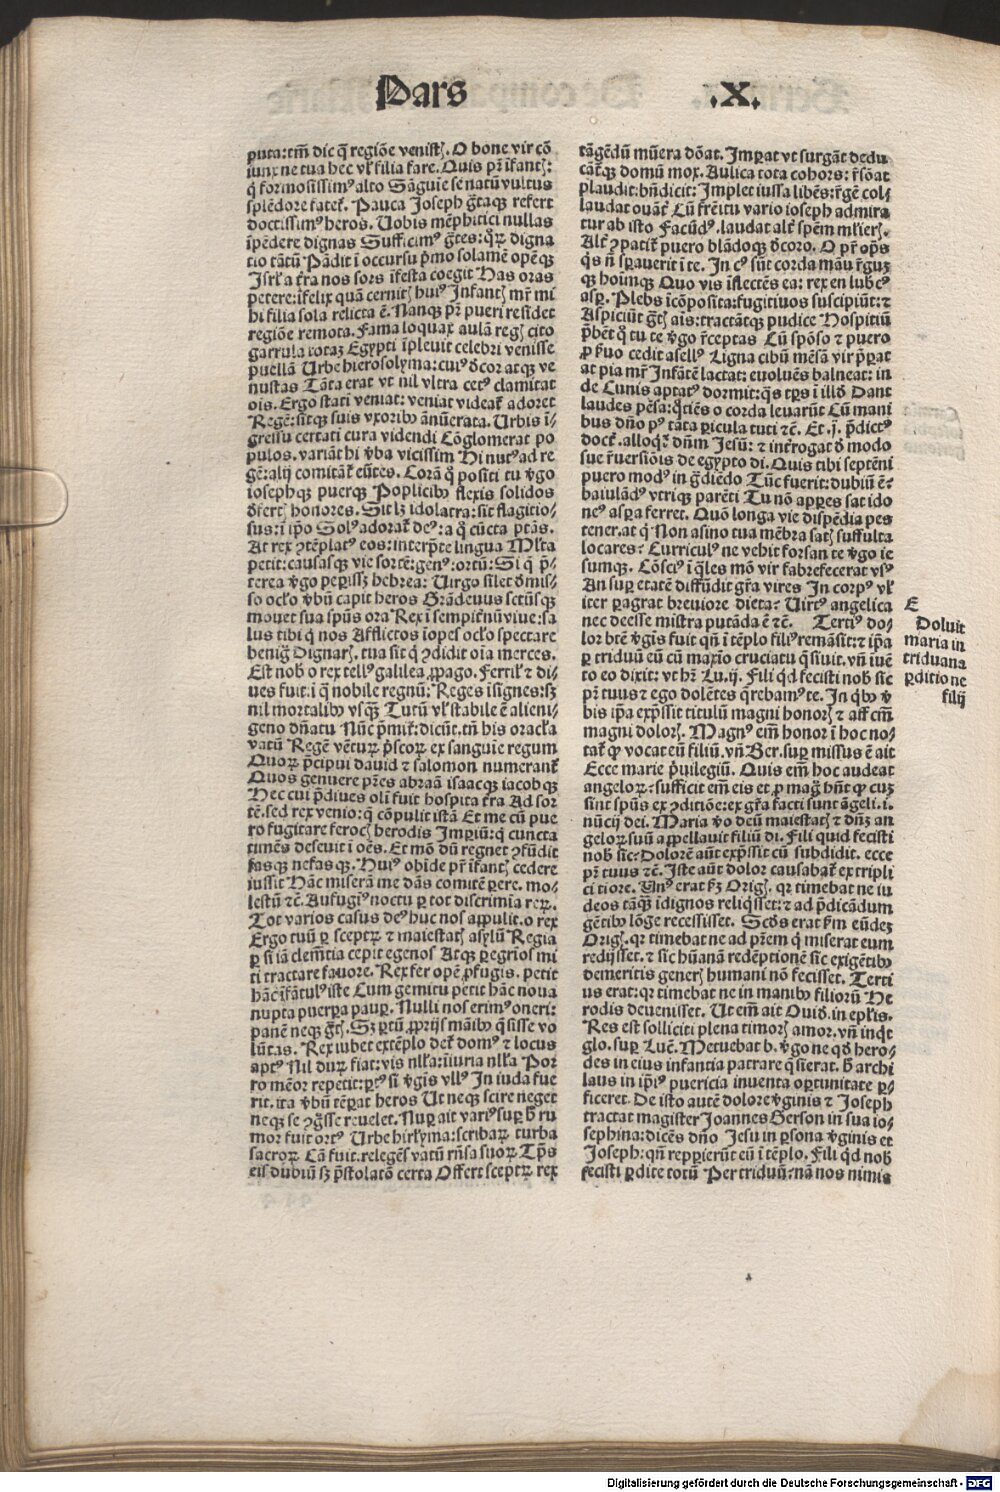 Pars
.X.
puta: tm̄ dic q̄ regiōe venistꝭ. O bone vir cō
iunx ne tua hec vł filia fare. Quis pr̄ īfantꝭ:
q̄ formosissimꝰ alto Sāguīe se natū vultus
splēdore fatet̄. Pauca Joseph ḡtaqꝫ refert
doctissimꝰ heros. Uobis mēphitici nullas
īpēdere dignas Sufficimꝰ ḡtes: qꝝ digna
tio tātū Pādit ī occursu p̄mo solamē opēqꝫ
Isrł'a t̄ra nos sors īfesta coegit Has oras
petere: īfelix quā cernitꝭ huiꝰ Infantꝭ mr̄ mi
hi filia sola relicta ē. Nanqꝫ pr̄ pueri residet
regiōe remota. Fama loquax aulā regꝭ cito
garrula totaꝫ Egypti īpleuit celebri venisse
puellā Urbe hierosolyma: cuiꝰ d̄cor atqꝫ ve
nustas Tāta erat vt nil vltra cetꝰ clamitat
oīs. Ergo stati veniat: veniat videat̄ adoret
Regē: sitqꝫ suis vxoribꝰ ānūerata. Urbis ī⸗
gressu certati cura videndi Cōglomerat po
pulos. variāt hi v̄ba vicissim Hi nutꝰ ad re
gē: alij comitāt̄ eūtes. Corā q̄ positi tu v̄go
iosephqꝫ puerqꝫ Poplicibꝰ flexis solidos
d̄fertꝭ honores. Sit lꝫ idolatra: sit flagitio⸗
sus: ī ip̄o Solꝰ adorat̄ deꝰ: a q̄ cūcta ptās.
At rex ꝯtēplatꝰ eos: interp̄te lingua Ml̄ta
petit: causasqꝫ vie sortē: genꝰ: ortū: Si q̄ p̄⸗
terea v̄go perissꝫ hebrea: Uirgo silet d̄mis⸗
so ocł'o v̄bū capit heros Grādeuus sctūsqꝫ
mouet sua spūs ora Rex ī sempitnū viue: sa
lus tibi q̄ nos Afflictos īopes ocł'o spectare
benig̊ Dignarꝭ. tua sit q̄ ꝯdidit oīa merces.
Est nob̄ o rex tellꝰ galilea ꝓpago. Fertił & di⸗
ues fuit: ī q̄ nobile regnū: Reges īsignes: sꝫ
nil mortalibꝰ vsqꝫ Tutū vł stabile ē alieni⸗
geno dn̄atu Nūc p̄mit̄: dicūt. tn̄ his oracł'a
vatū Regē vētuꝝ p̄scoꝝ ex sanguīe regum
Quoꝝ p̄cipui dauid & salomon numerant̄
Quos genuere pr̄es abraā isaacqꝫ iacobqꝫ
Hec cui p̄diues oli fuit hospita t̄ra Ad sor
tē. sed rex venio: q̄ cōpulit istā Et me cū pue
ro fugitare ferocꝭ herodis Imꝑiū: q̄ cuncta
timēs deseuit ī oēs. Et mō dū regnet ꝯfūdit
fasqꝫ nefasqꝫ. Huiꝰ ob īde pr̄ īfantꝭ cedere
iussit Hāc miserā me dās comitē ꝑere. mo⸗
lestū &ē. Aufugiꝰ noctu ꝑ tot discrimia reꝝ.
Tot varios casus deꝰ huc nos appulit. o rex
Ergo tuū ꝑ sceptꝝ & maiestatꝭ asylū Regia
ꝑ si iā clemētia cepit egenos Atqꝫ ꝑegrīos mi
ti tractare fauore. Rex fer opē ꝓfugis. petit
hāc īfātulꝰ iste Cum gemitu petit hāc noua
nupta puerpa pauꝑ. Nulli nos erimꝰ oneri:
panē neqꝫ ḡtꝭ. Sꝫ ꝑtū ꝓprijs māibꝰ q̄sisse vo
lūtas. Rex iubet extēplo det̄ domꝰ & locus
aptꝰ Nil duꝝ fiat: vis nłł'a: iīuria nłł'a Por
ro mēor repetit: ꝑtꝰ si v̄gīs vllꝰ In iuda fue
rit. ita v̄bū tēꝑat heros Ut neqꝫ scire neget
neqꝫ se ꝯg̊sse reuelet. Nuꝑ ait variꝰ suꝑ h̄ ru
mor fuit ortꝰ Urbe hirł'yma: scribaꝝ turba
sacroꝝ Cā fuit. relegēs vatū rn̄sa suoꝝ Tp̄s
eis dubiū sꝫ p̄stolatō certa Offert sceptꝝ rex
tāgēdū mūera dōat. Imꝑat vt surgāt dedu
cāt̄qꝫ domū mox. Aulica tota cohors: r̄sōat
plaudit: bn̄dicit: Implet iussa libēs: r̄gē col⸗
laudat ouāt̄ Cū fr̄eītu vario ioseph admira
tur ab isto Facūdꝰ. laudat alt̄ spēm ml̄ierꝭ.
Alt̄ ꝯpatit̄ puero blādoqꝫ d̄coro. O pr̄ op̄s
q̄s n̄ sꝑauerit ī te. In cꝰ sūt corda manū r̄guꝫ
qꝫ hoīumqꝫ Quo vis īflectēs ea: rex en lubꝫ eꝰ
aspꝝ. Plebs īcōposita: fugitiuos suscipiūt: &
Aspiciūt ḡtꝭ aīs: tractātqꝫ pudice Hospitiū
p̄bēt q̄ tu te v̄go r̄ceptas Cū spōso & puero
ꝓ s̄uo cedit asellꝰ Ligna cibū mēsā vir p̄ꝑat
at pia mr̄ Infātē lactat: euoluēs balneat: in
de Cunis aptatꝰ dormit: q̄s tp̄s ī illd̄ Dant
laudes pēsa: q̄tiēs o corda leuarūt Cū mani
bus dn̄o pꝰ tāta ꝑicula tuti &ē. Et .j. p̄dictꝰ
doct̄. alloqt̄ dn̄m Jesū: & int̄rogat d̄ modo
sue r̄uersiōis de egypto di. Quis tibi septēni
puero modꝰ in g̊diēdo Tūc fuerit: dubiū ē:
baiulādꝰ vtriqꝫ parēti Tu nō appares sat ido
neꝰ asꝑa ferret. Quō longa vie dispēdia pes
tener. at q̄ Non asino tua mēbra satꝭ suffulta
locares: Curriculꝰ ne vehit forsan te v̄go ie
sumqꝫ. Cōsciꝰ ī q̄les mō vir fabrefecerat vsꝰ
An suꝑ etatē diffūdit gr̄a vires In corpꝰ vł
iter ꝑagrat breuiore dieta: Uirtꝰ angelica
nec deesse mistra putāda ē &ē. Tertiꝰ do⸗
lor btē v̄gīs fuit qn̄ ī tēplo filiꝰ remāsit: & ip̄a
ꝑ triduū eū cū maxīo cruciatu q̄siuit. vn̄ iuē
to eo dixit: vt hr̄ Lu.ij. Fili qd̄ fecisti nob̄ sic
pr̄ tuus & ego dolētes q̄rebamꝰ te. In qbꝰ v̄
bis ip̄a exp̄ssit titulū magni honorꝭ & aff̄cm̄
magni dolorꝭ. Magnꝰ em̄ honor ī hoc no⸗
tat̄ ꝙ vocat eū filiū. vn̄ Ber. suꝑ missus ē ait
Ecce marie p̄uilegiū. Quis em̄ hoc audeat
angeloꝝ: sufficit em̄ eis et ꝓ mag̊ hn̄t ꝙ cuꝫ
sint spūs ex ꝯditiōe: ex gr̄a facti sunt āgeli. i.
nūcij dei. Maria v̄o deū maiestatꝭ & dn̄ꝫ an
geloꝝ suū appellauit filiū di. Fili quid fecisti
nob̄ sic: Dolorē aūt exp̄ssit cū subdidit. ecce
pr̄ tuus &ē. Iste aūt dolor causabat̄ ex tripli
ci tīore. Unꝰ erat s̄ꝫ Origꝭ. qꝛ timebat ne iu
deos tāqꝫ īdignos reliq̄sset: & ad p̄dicādum
gētibꝰ lōge recessisset. Scd̄s erat s̄m eūdeꝫ
Origꝭ. qꝛ timebat ne ad pr̄em q̄ miserat eum
redijsset. & sic hūanā redēptionē sic exigētibꝰ
demeritis generꝭ humani nō fecisset. Terti
us erat: qꝛ timebat ne in manibꝰ filiorū He
rodis deuenisset. Ut em̄ ait Ouid̄. in epl̄is.
Res est solliciti plena timorꝭ amor. vn̄ inqt̄
glo. suꝑ Luē. Metuebat b. v̄go ne qd̄ hero⸗
des in eius infantia patrare q̄sierat. h̄ archi
laus in ip̄iꝰ puericia inuenta oꝑtunitate ꝑ⸗
ficeret. De isto autē dolore v̄ginis & Joseph
tractat magister Joannes Gerson in sua io⸗
sephina: dicēs dn̄o Jesu in ꝑsona v̄ginis et
Joseph: qn̄ repꝑierūt eū ī tēplo. Fili qd̄ nob̄
fecisti ꝑdite totū Per triduū: nā nos nimis
E
Doluit
maria in
triduana
ꝑditione
filij
Digitalisierung gefördert durch die Deutsche Forschungsgemeinschaft - DFG